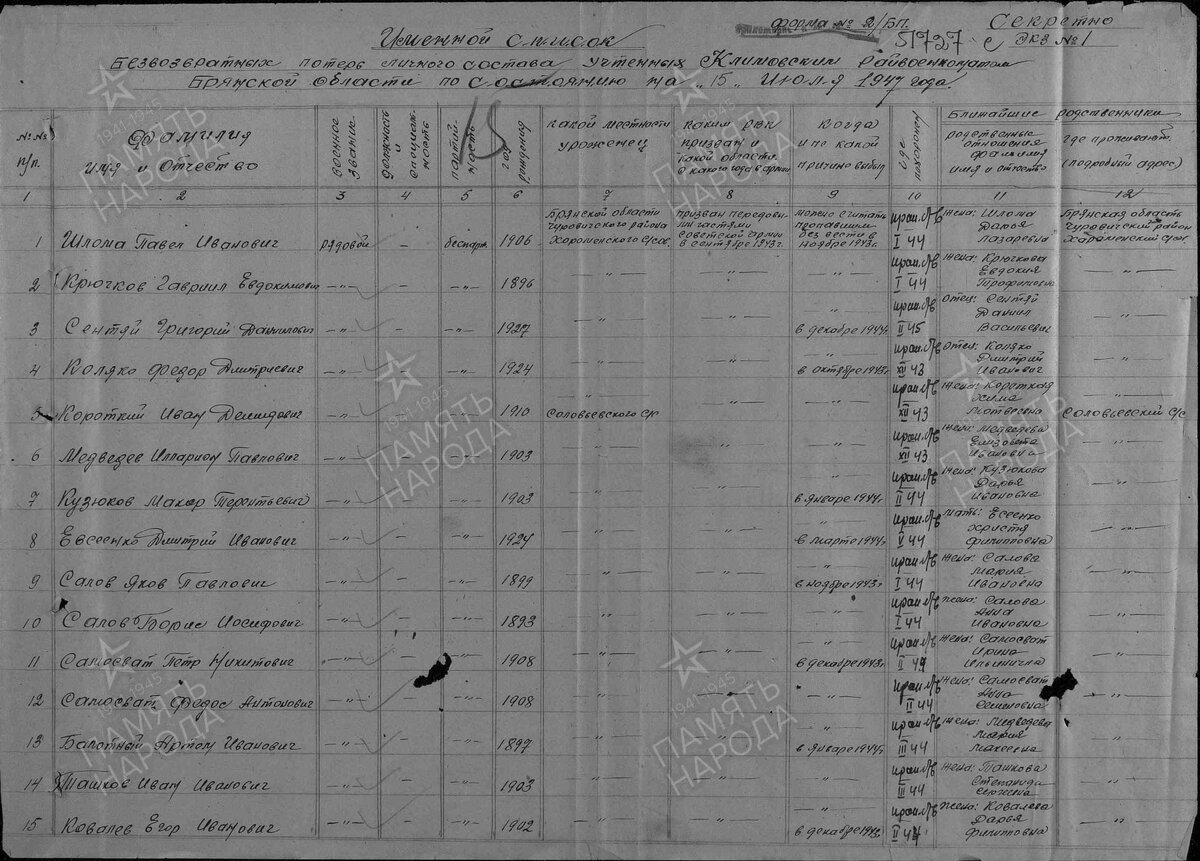 форма № 2/БП.
Секретно
51727 с
Экз №1
Именной список
Безвозвратных потерь личного состава учтенных Климовским райвоенкоматом
Брянской области по состоянию на „15„ Июля 1947 года.
№№ п/п.
Фамилия имя и отчество
военное звание
должность и специальность
партийность
год рождения
какой местности уроженец
каким РВК призван и какой области. С какого года в армии
когда и по какой причине выбыл
где похоронен
Ближайшие родственники
родственные отношения фамилия имя и отчество
где проживают. (подробный адрес)
1 2 3 4 5 6 7 8 9 10 11 12
1 Шлома Павел Иванович рядовой – беспарт. 1906 Брянской области Чуровичского района Хоромен​ского с/сов. призван передовыми частями Советской армии в сентябре 1943г. можно считать пропавшим без вести в ноябре 1943г. I 44 жена: Шлома Дарья Лазаревна Брянская область Чуровичский район Хароменский с/сов
2 Крючков Гавриил Евдокимович –„– – –„– 1896 –„– –„– –„– I 44 жена: Крючкова Евдокия Трофимовна –„–
3 Сентяй Григорий Данилович –„– – –„– 1927 –„– –„– „ в декабре 1944г. II 45 отец: Сентяй Даниил Васильевич –„–
4 Коляко Федор Дмитриевич –„– – –„– 1924 –„– –„– „ в октябре 1943г. XII 43 отец: Коляко Дмитрий Иванович –„–
5 Короткий Иван Демидович –„– – –„– 1910 „ Соловьевского с/с –„– –„– XII 43 жена: Короткая Хима Матвеевна Соловьевский с/с
6 Медведев Илларион Павлович –„– – –„– 1903 –„– –„– –„– XII 43 жена: Медведева Елизовета Ивановна –„–
7 Кузюков Макар Терентьевич –„– – –„– 1903 –„– –„– „ в январе 1944г. II 44 жена: Кузюкова Дарья Ивановна –„–
8 Евсеенко Дмитрий Иванович –„– – –„– 1924 –„– –„– „ в марте 1944г. V 44 мать: Есеенко Христя Филипповна –„–
9 Салов Яков Павлович –„– – –„– 1899 –„– –„– „ в ноябре 1943г I 44 жена: Салова Мария Ивановна –„–
10 Салов Борис Иосифович –„– – –„– 1893 –„– –„– –„– I 44 жена: Салова Анна Ивановна –„–
11 Самосват Петр Никитович –„– – –„– 1908 –„– –„– „ в декабре 1943г. II 44 жена: Самосват Ирина Ильинична –„–
12 Самосват Федос Антонович –„– – –„– 1908 –„– –„– –„– II 44 жена: Самосват Анна Семеновна –„–
13 Балотный Артем Иванович –„– – –„– 1897 –„– –„– „ в январе 1944г. III 44 жена: Медведева Мария –„–
14 Ташков Иван Иванович –„– – –„– 1903 –„– –„– –„– III 44 жена: Ташкова Степанида Сергеевна –„–
15 Ковалев Егор Иванович –„– – –„– 1902 –„– –„– „ в декабре 1943г. II 44 жена: Ковалева Дарья Филипповна –„–
1941-1945
ПАМЯТЬ
НАРОДА
1941-1945
ПАМЯТЬ
НАРОДА
1941-1945
ПАМЯТЬ
НАРОДА
1941-1945
ПАМЯТЬ
НАРОДА
1941-1945
ПАМЯТЬ
НАРОДА
1941-1945
ПАМЯТЬ
НАРОДА
1941-1945
ПАМЯТЬ
НАРОДА
1941-1945
ПАМЯТЬ
НАРОДА